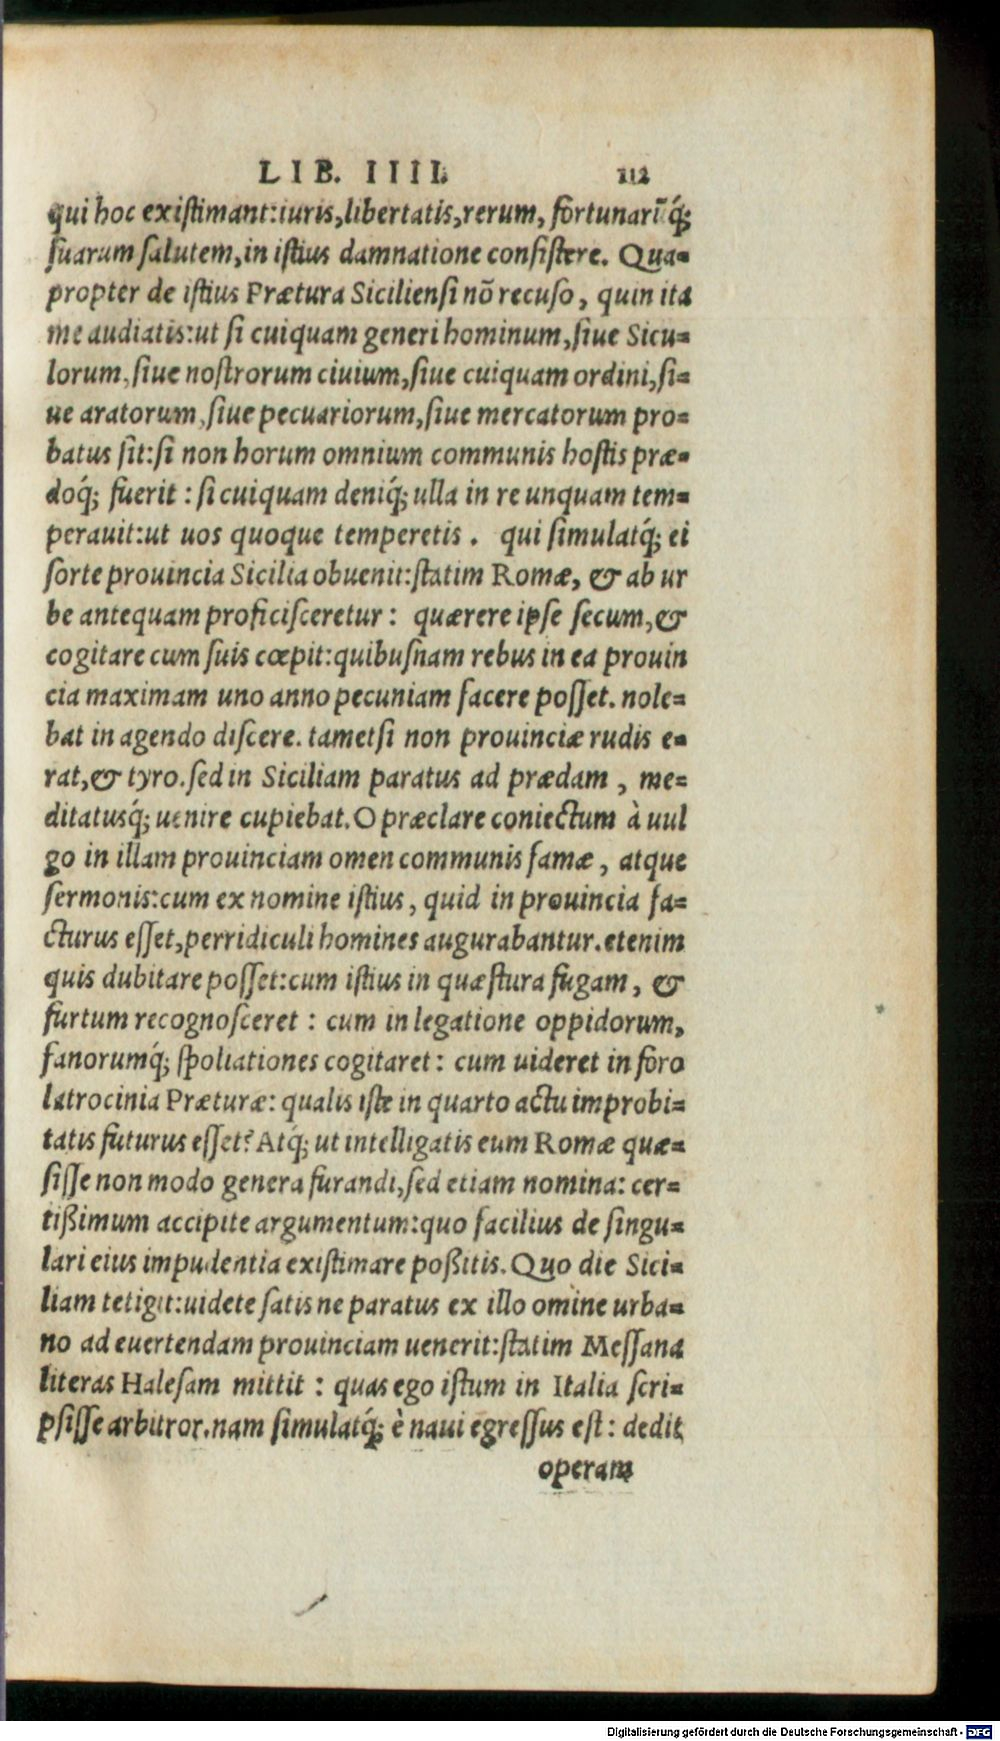 LIB. IIII. 112
qui hoc exiſtimant:iuris,libertatis,rerum, fortunarū́q́;
ſuarum ſalutem,in iſtius damnatione conſiſtere. Qua-
propter de iſtius Prætura Sicilienſi nō recuſo, quin ita
me audiatis:ut ſi cuiquam generi hominum,ſiue Sicu-
lorum,ſiue noſtrorum ciuium,ſiue cuiquam ordini,ſi-
ue aratorum,ſiue pecuariorum,ſiue mercatorum pro-
batus ſit:ſi non horum omnium communis hoſtis præ-
doq́; fuerit : ſi cuiquam deniq́; ulla in re unquam tem-
perauit:ut uos quoque temperetis . qui ſimulatq́; ei
ſorte prouincia Sicilia obuenit:ſtatim Romæ, & ab ur
be antequam proficiſceretur : quærere ipſe ſecum,&
cogitare cum ſuis cœpit:quibuſnam rebus in ea prouin
cia maximam uno anno pecuniam facere poſſet. nole-
bat in agendo diſcere. tametſi non prouinciæ rudis e-
rat,& tyro.ſed in Siciliam paratus ad prædam , me-
ditatusq́; uenire cupiebat.O præclare coniectum à uul
go in illam prouinciam omen communis famæ, atque
ſermonis:cum ex nomine iſtius, quid in prouincia fa-
cturus eſſet,perridiculi homines augurabantur.etenim
quis dubitare poſſet:cum iſtius in quæſtura fugam, &
furtum recognoſceret : cum in legatione oppidorum,
fanorumq́; ſpoliationes cogitaret : cum uideret in foro
latrocinia Præturæ: qualis iſte in quarto actu improbi-
tatis futurus eſſet? Atq́; ut intelligatis eum Romæ quæ-
ſiſſe non modo genera furandi,ſed etiam nomina: cer-
tißimum accipite argumentum:quo facilius de ſingu-
lari eius impudentia exiſtimare poßitis. Quo die Sici-
liam tetigit:uidete ſatis ne paratus ex illo omine urba-
no ad euertendam prouinciam uenerit:ſtatim Meſſana
literas Haleſam mittit : quas ego iſtum in Italia ſcri-
pſiſſe arbitror.nam ſimulatq́; è naui egreſſus eſt: dedit
operam
Digitalisierung gefördert durch die Deutsche Forschungsgemeinschaft - DFG